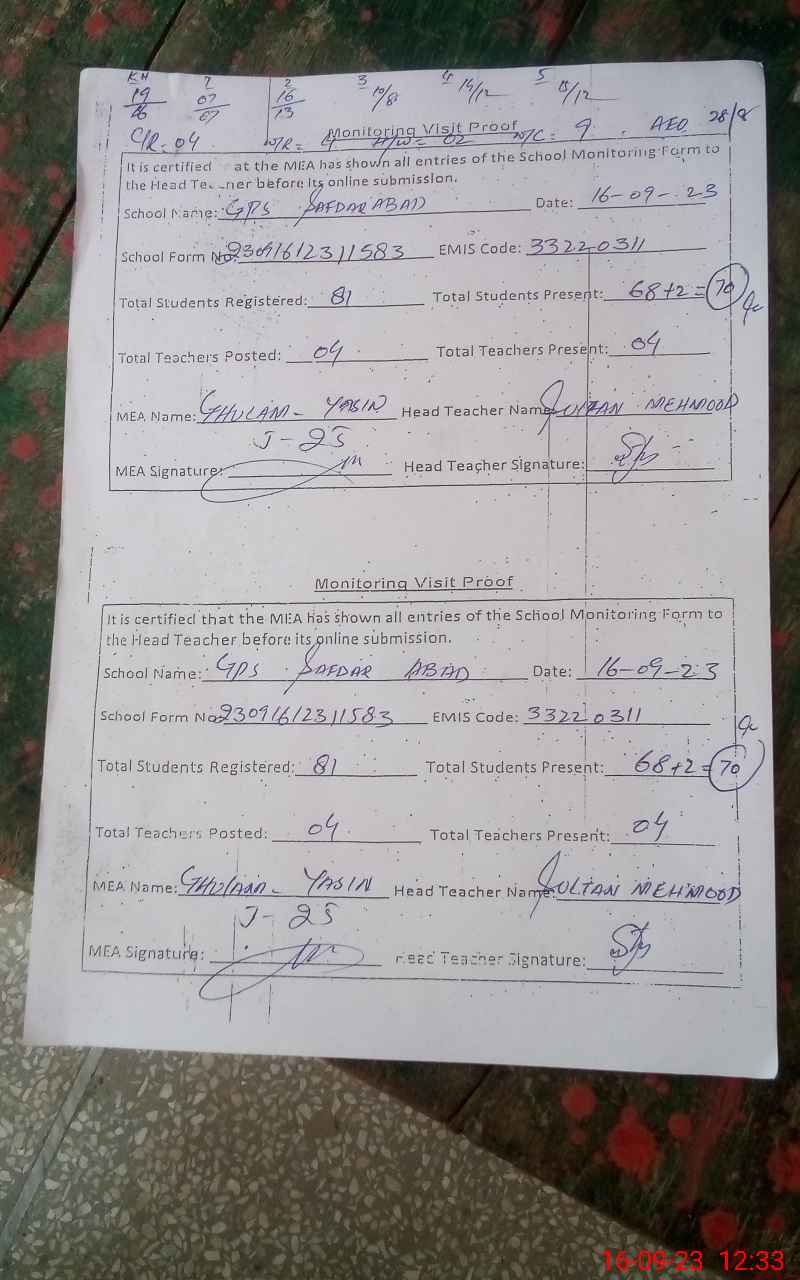 KH 1 2 3 4 5
19/26 07/07 16/13 10/8 14/12 15/12
Monitoring Visit Proof
C/R= 04 4 = 02 = 9 . AEO 28/8
It is certified at the MEA has shown all entries of the School Monitoring Form to
the Head Te ner before its online submission.
School Name: GPS SAFDAR ABAD Date: 16-09-23
School Form No: 23091612311583 EMIS Code: 33220311
Total Students Registered: 81 Total Students Present: 68+2=70
Total Teachers Posted: 04 Total Teachers Present: 04
MEA Name: GHULAM- YASIN Head Teacher Name: SULTAN MEHMOOD
J-25
MEA Signature: Head Teacher Signature:
Monitoring Visit Proof
It is certified that the MEA has shown all entries of the School Monitoring Form to
the Head Teacher before its online submission.
School Name: GPS SAFDAR ABAD Date: 16-09-23
School Form No: 23091612311583 EMIS Code: 33220311
Total Students Registered: 81 Total Students Present: 68+2=70
Total Teachers Posted: 04 Total Teachers Present: 04
MEA Name: GHULAM- YASIN Head Teacher Name: SULTAN MEHMOOD
J-25
MEA Signature: Head Teacher Signature:
16-09-23 12:33